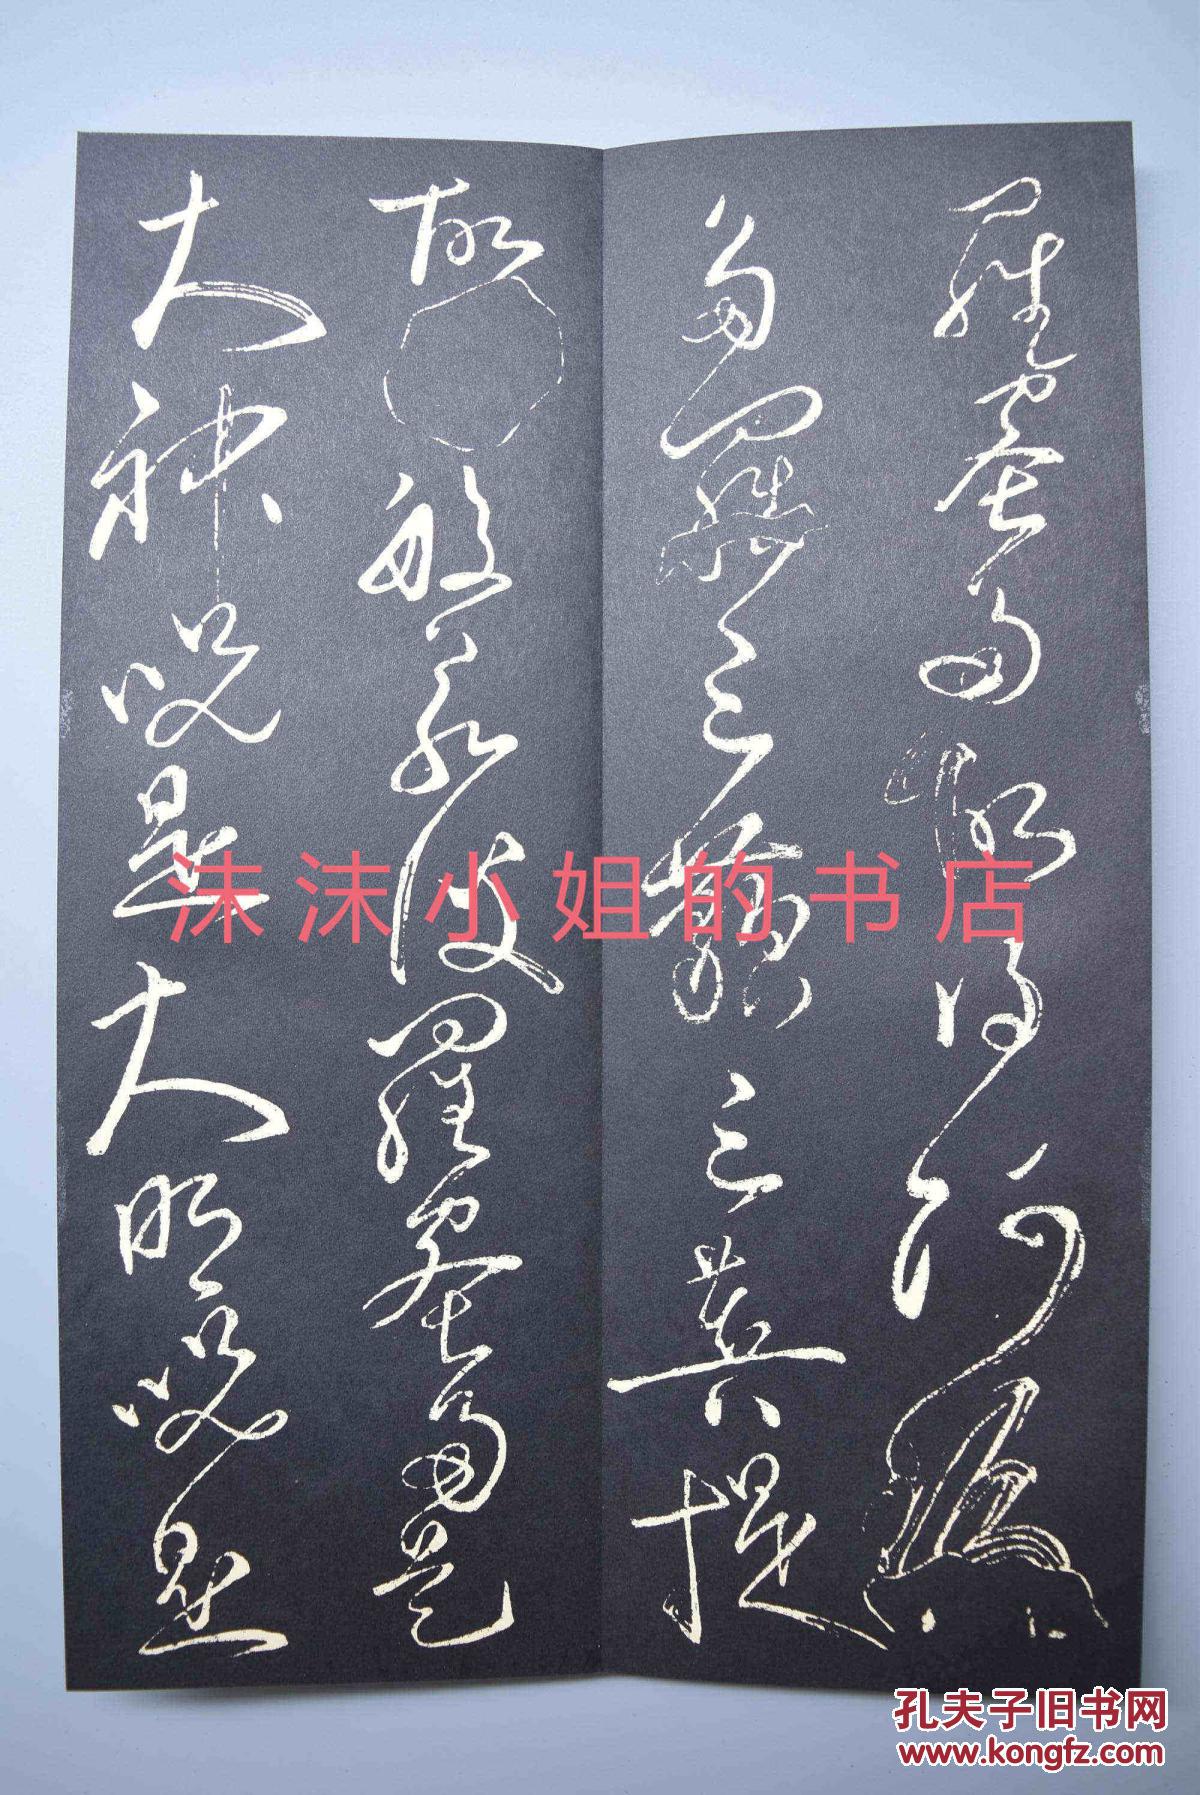 羅蜜多故得阿耨
多羅三藐三菩提
故知般若波羅蜜多是
大神咒是大明咒是
沫沫小姐的书店
孔夫子旧书网
www.kongfz.com